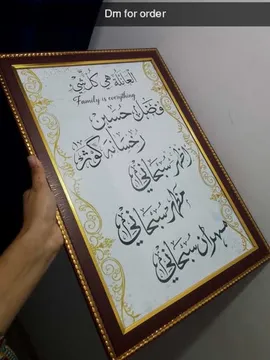 Dm for order
العائلة هي كل شيء
Family is everything
فضل حسين
رخسانہ کوثر
انصر سبحانی
مظہر سبحانی
مہران سبحانی